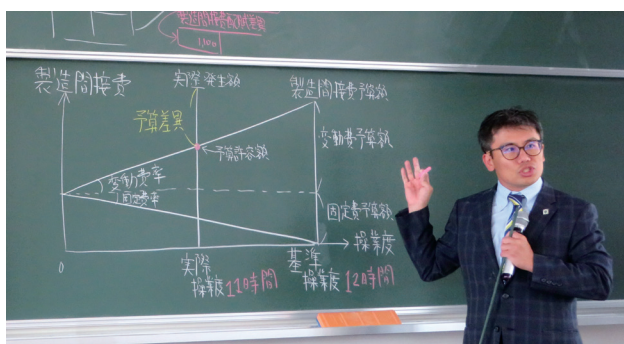 製造間接費配賦差異
1,100
製造間接費
実際発生額
製造間接費予算額
予算差異
変動費予算額
予算許容額
変動費率
固定費率
固定費予算額
操業度
0
実際
操業度 11時間
基準
操業度 12時間